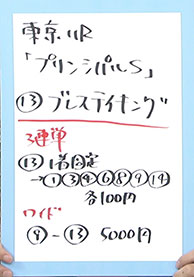 東京11R
「プリンシパルS」
⑬ブレステイキング
3連単
⑬1着固定
→①③④⑥⑧⑨⑭
各100円
ワイド
⑨-⑬ 5000円